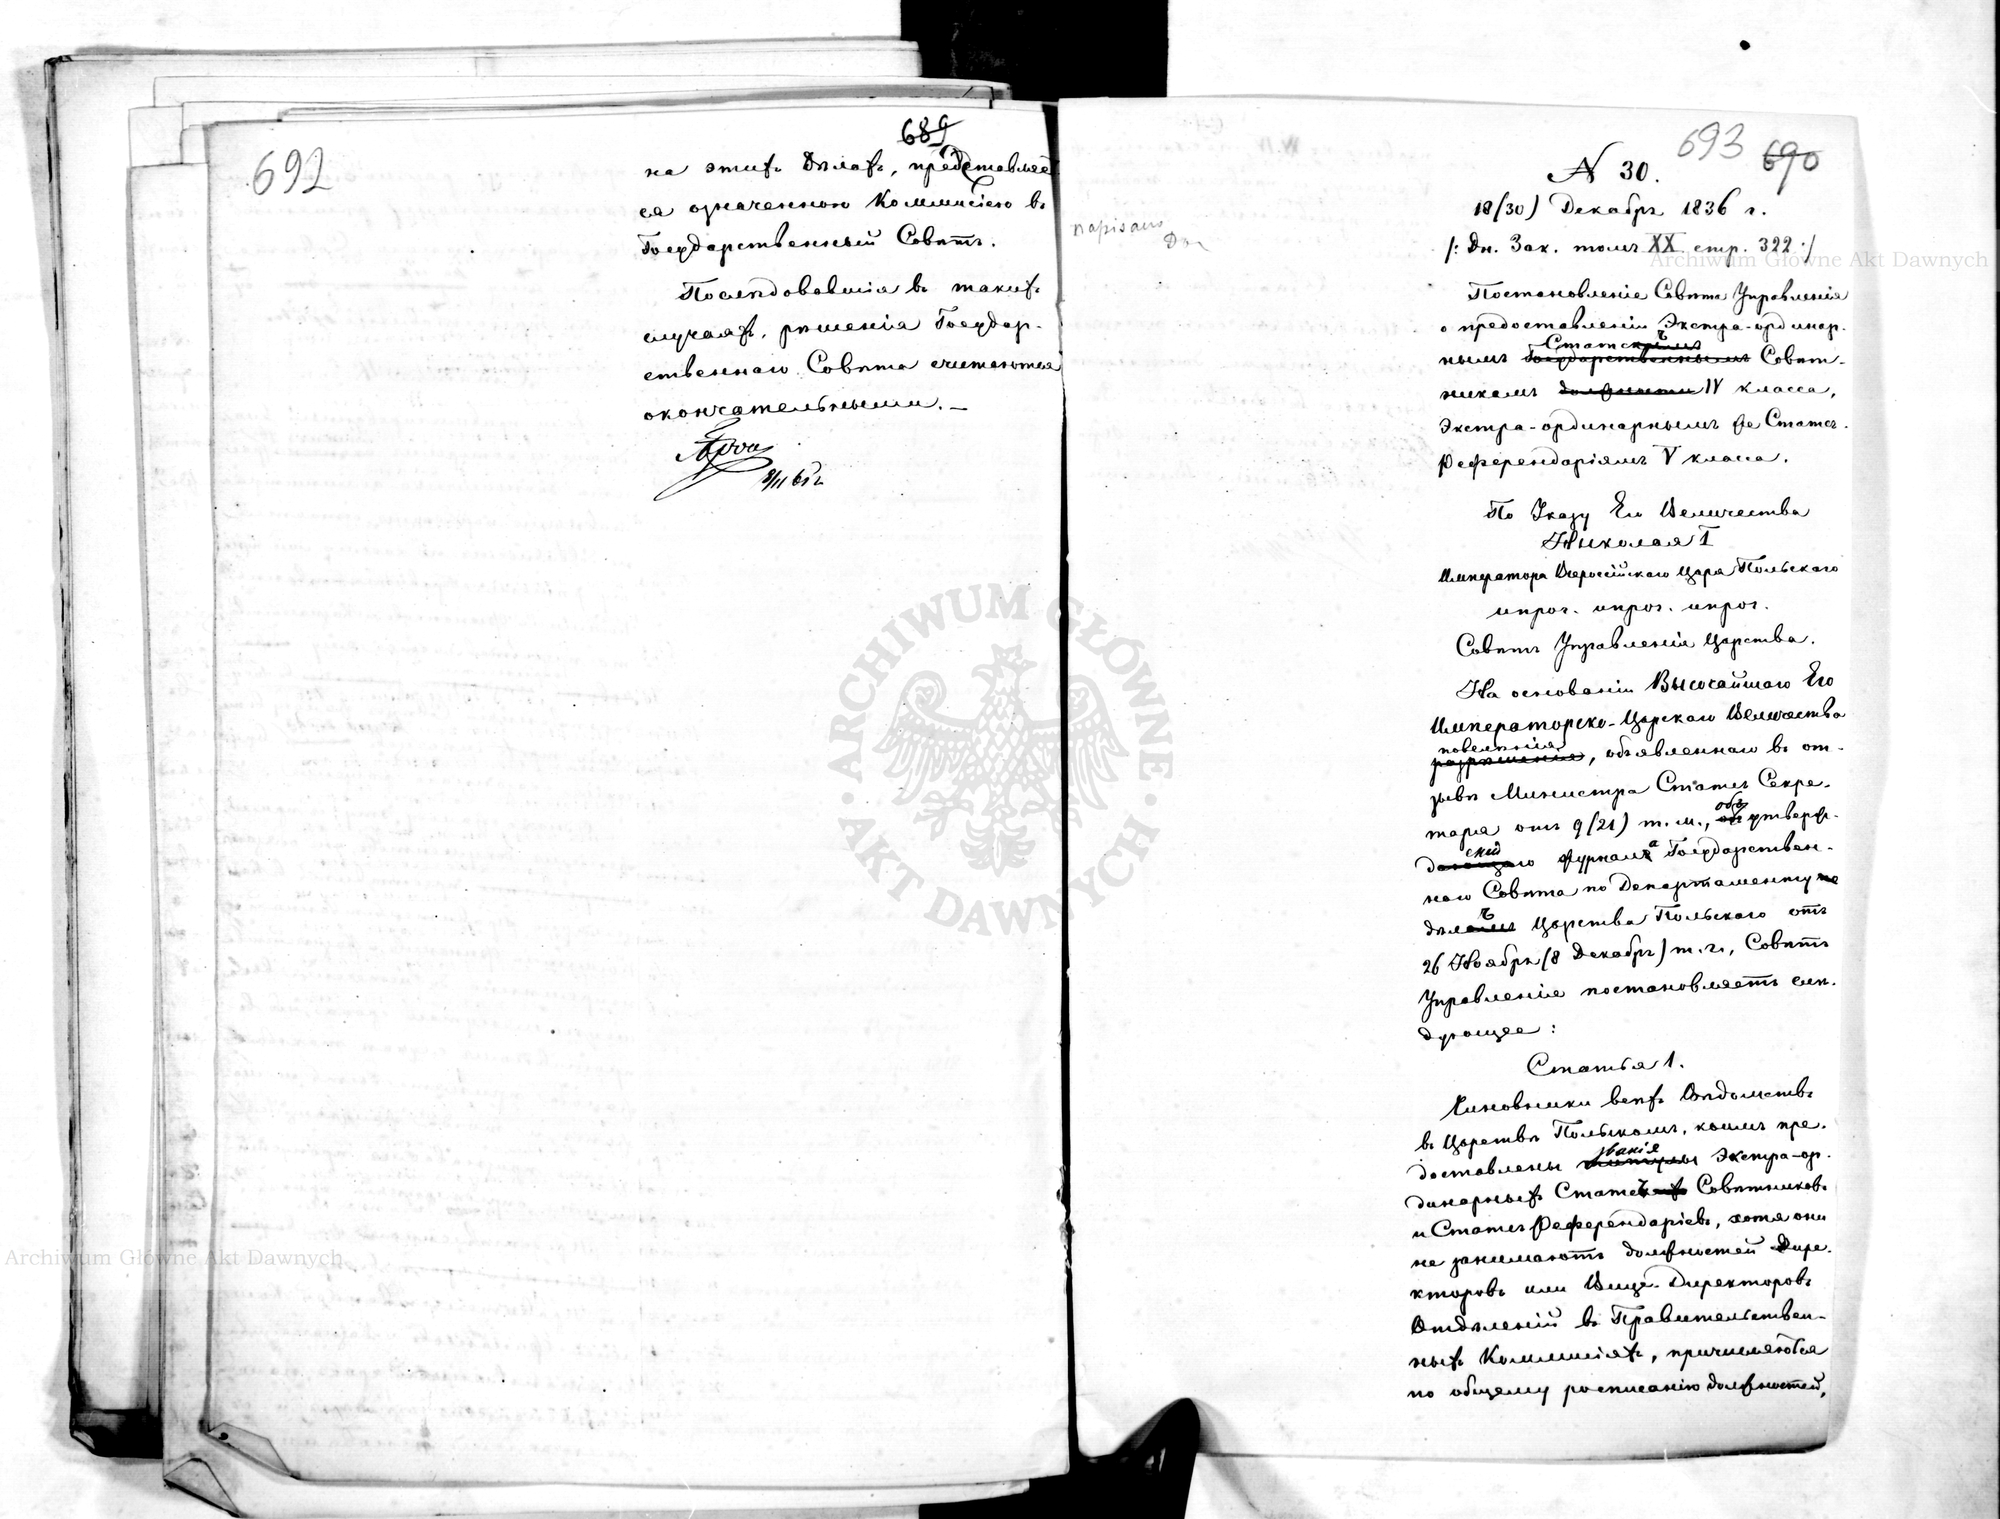 689
692
на этихъ Дѣлахъ, представляет
ся означенною Коммисіею въ
Государственный Совѣтъ.
Послѣдовавшія въ такихъ
случаяхъ, рѣшенія Государ-
ственнаго Совѣта считаются
окончательными. —
693 690
N 30.
18/30) Декабрѣ 1836 г.
/: Дн. Зак. томъ XX стр. 322 :/
napisano
Постановленіе Совѣта Управленія
о предоставленіи Экстра-ординар-
Статскимъ
нымъ Государственнымъ Совѣт-
никамъ должности IV класса,
Экстра-ординарнымъ же Статсъ-
Референдаріямъ V класса.
По Указу Его Величества
Николая I
Императора Всероссійскаго Царя Польскаго
ипроч. ипроч. ипроч.
Совѣтъ Управленія Царства.
На основаніи Высочайшаго Его
Императорско-Царскаго Величества
повелѣнія
разрѣшенія, объявленнаго въ от-
зывѣ Министра Статсъ Секре-
таря отъ 9/21) т. м., объ утверж-
деніи
журнала Государствен-
наго Совѣта по Департаменту по
дѣламъ Царства Польскаго отъ
26 Ноября (8 Декабрѣ) т. г., Совѣтъ
Управленія постановляетъ слѣ-
дующее:
Статья 1.
Чиновники всѣхъ Вѣдомствъ
въ Царствѣ Польскомъ, коимъ пре-
званія
доставлены титулы Экстра-ор-
динарныхъ Статсъ Совѣтниковъ
и Статсъ Референдаріевъ, хотя они
не занимаютъ должностей Дире-
кторовъ или Вице-Директоровъ
Отдѣленій въ Правительствен-
ныхъ Коммисіяхъ, причисляются
по общему росписанію должностей,
ARCHIWUM GŁÓWNE AKT DAWNYCH
Archiwum Główne Akt Dawnych
Archiwum Główne Akt Dawnych